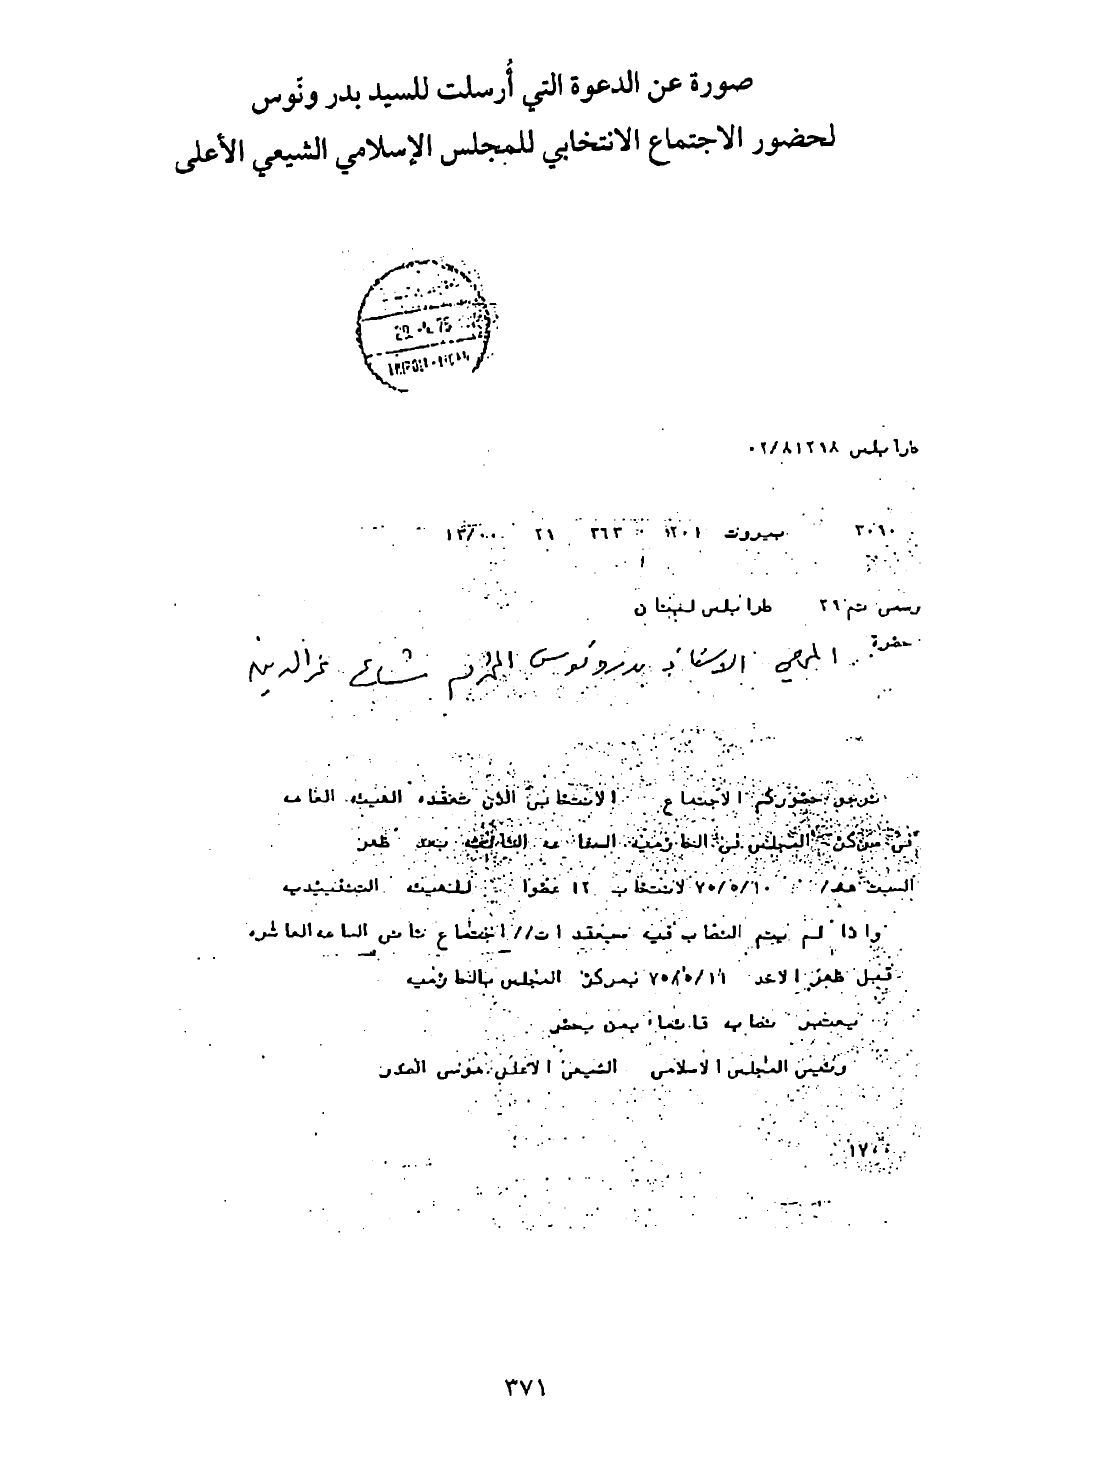 صورة عن الدعوة التي أُرسلت للسيد بدر ونّوس
لحضور الاجتماع الانتخابي للمجلس الإسلامي الشيعي الأعلى
29 75
طرابلس ٠٢/٨١٢١٨
٣٠٦٠ بيروت ١٢٠١ ٣٦٣ ٢٦ ١٣/٠٠
رسمي تم ٢٦ طرابلس لبنان
حضرة
المربي الاستاذ بدر ونوس المحترم شارع عزالدين
نرجو حضوركم الاجتماع الانتخابي الذي تعقده الهيئه العامه
في مركز المجلس في الحازميه الساعه الثالثه بعد ظهر
السبت ٧٥/٥/١٠ لانتخاب ١٢ عضوا للهيئه التنفيذيه
واذا لم يتم النصاب فيه سيعقد ات// اجتماع ثاني الساعه العاشره
قبل ظهر الاحد ٧٥/٥/١١ بمركز المجلس بالحازميه
يعتبر نصابه قائما بمن يحضر
رئيس المجلس الاسلامي الشيعي الاعلى موسى الصدر
١٧٠٠
٣٧١